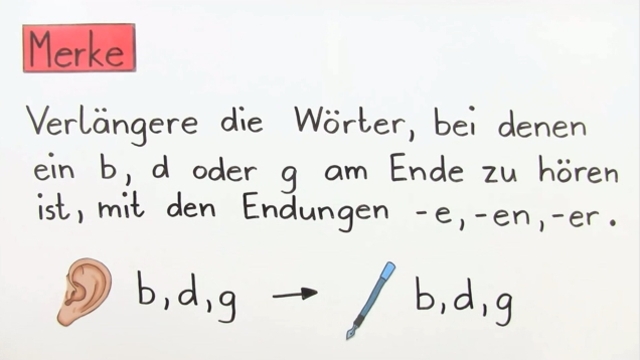 Merke
Verlängere die Wörter, bei denen
ein b, d oder g am Ende zu hören
ist, mit den Endungen -e, -en, -er.
b, d, g → b, d, g